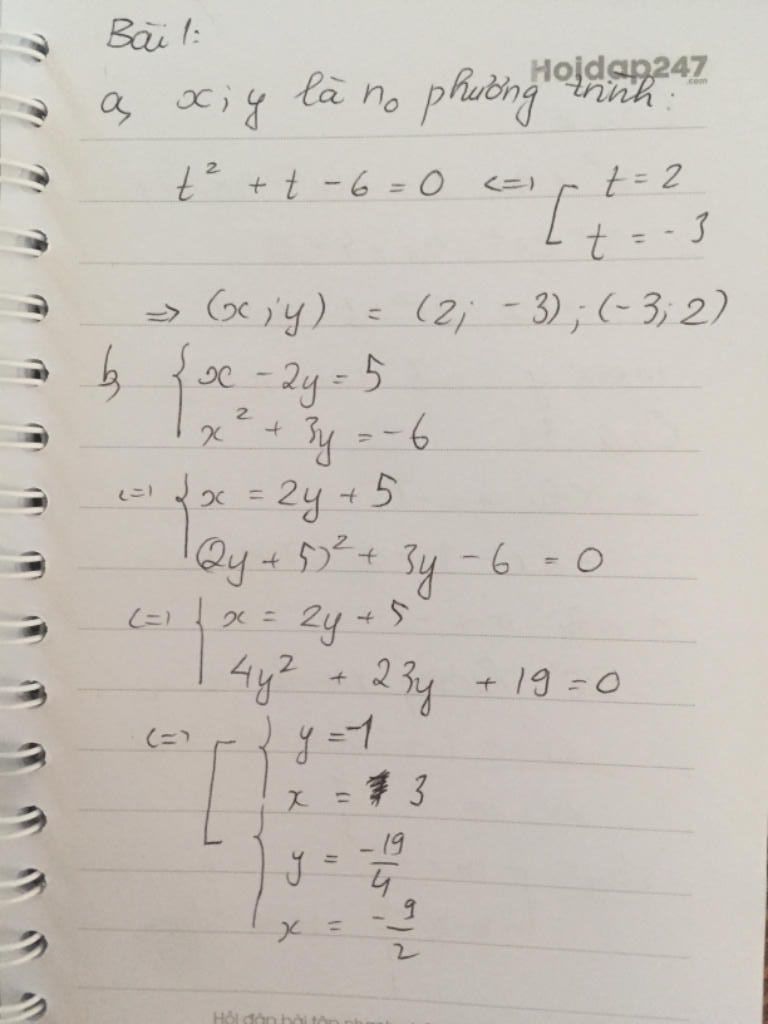 Bài 1:
Hoidap247
.com
a, x; y là n₀ phương trình:
t² + t - 6 = 0 <=> [ t = 2
t = - 3
=> (x; y) = (2; - 3); (- 3; 2)
b, { x - 2y = 5
x² + 3y = - 6
<=> { x = 2y + 5
(2y + 5)² + 3y - 6 = 0
<=> { x = 2y + 5
4y² + 23y + 19 = 0
<=> [ { y = -1
x = 3
{ y = -19/4
x = -9/2